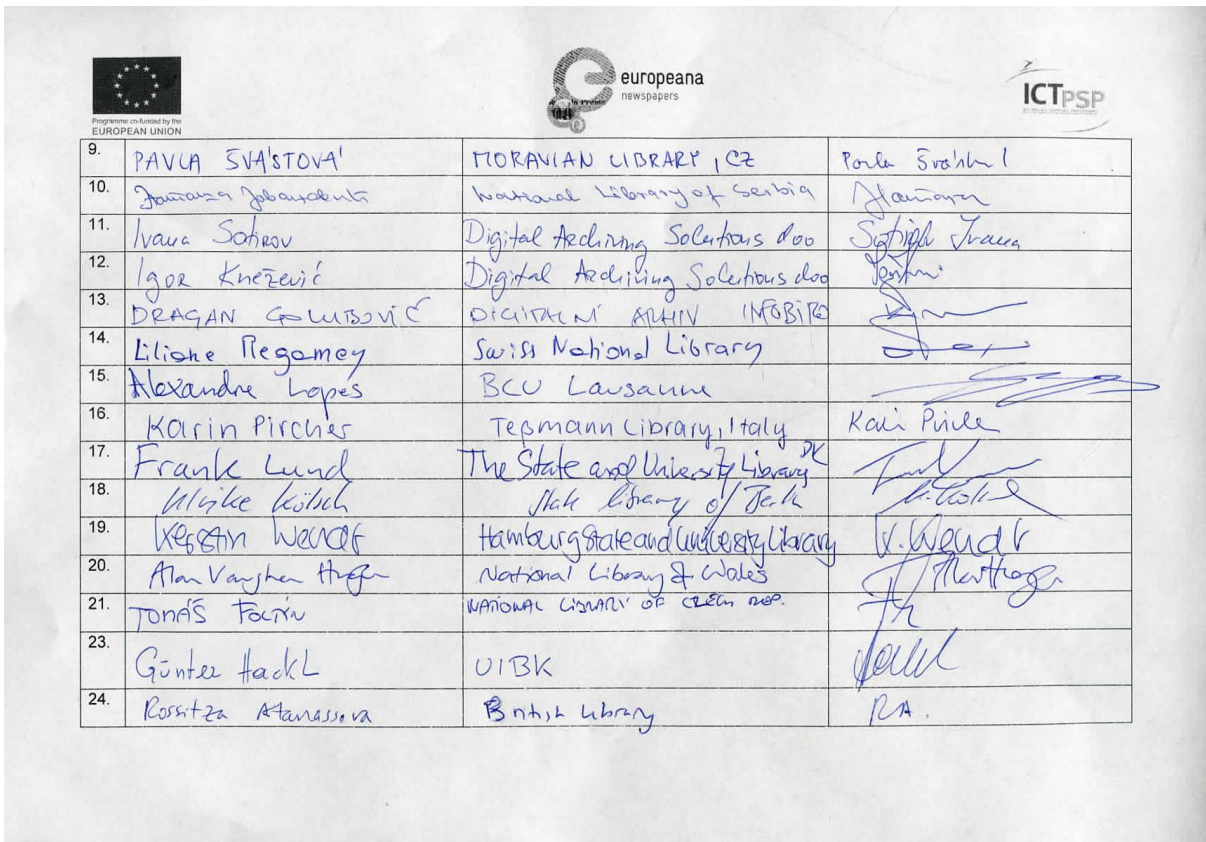 Programme co-funded by the
EUROPEAN UNION
europeana
newspapers
ICT PSP
9. PAVLA ŠVÁSTOVÁ MORAVIAN LIBRARY, CZ
10. National Library of Serbia
11. Ivana Sotirov Digital Archiving Solutions doo Ivana
12. Igor Knežević Digital Archiving Solutions doo
13. DRAGAN GOLUBOVIĆ DIGITALNI ARHIV INFOBIRO
14. Liliane Regamey Swiss National Library
15. Alexandre Lopes BCU Lausanne
16. Karin Pircher Teßmann Library, Italy
17. Frank Lund The State and University Library DK
18. Ulrike Kölsch State Library of Berlin
19. Kerstin Wendt Hamburg State and University Library K. Wendt
20. Alan Vaughan Hughes National Library of Wales
21. TOMÁŠ FOLTÝN NATIONAL LIBRARY OF CZECH REP.
23. Günter Hackl UIBK Hackl
24. Rossitza Atanassova British Library RA.